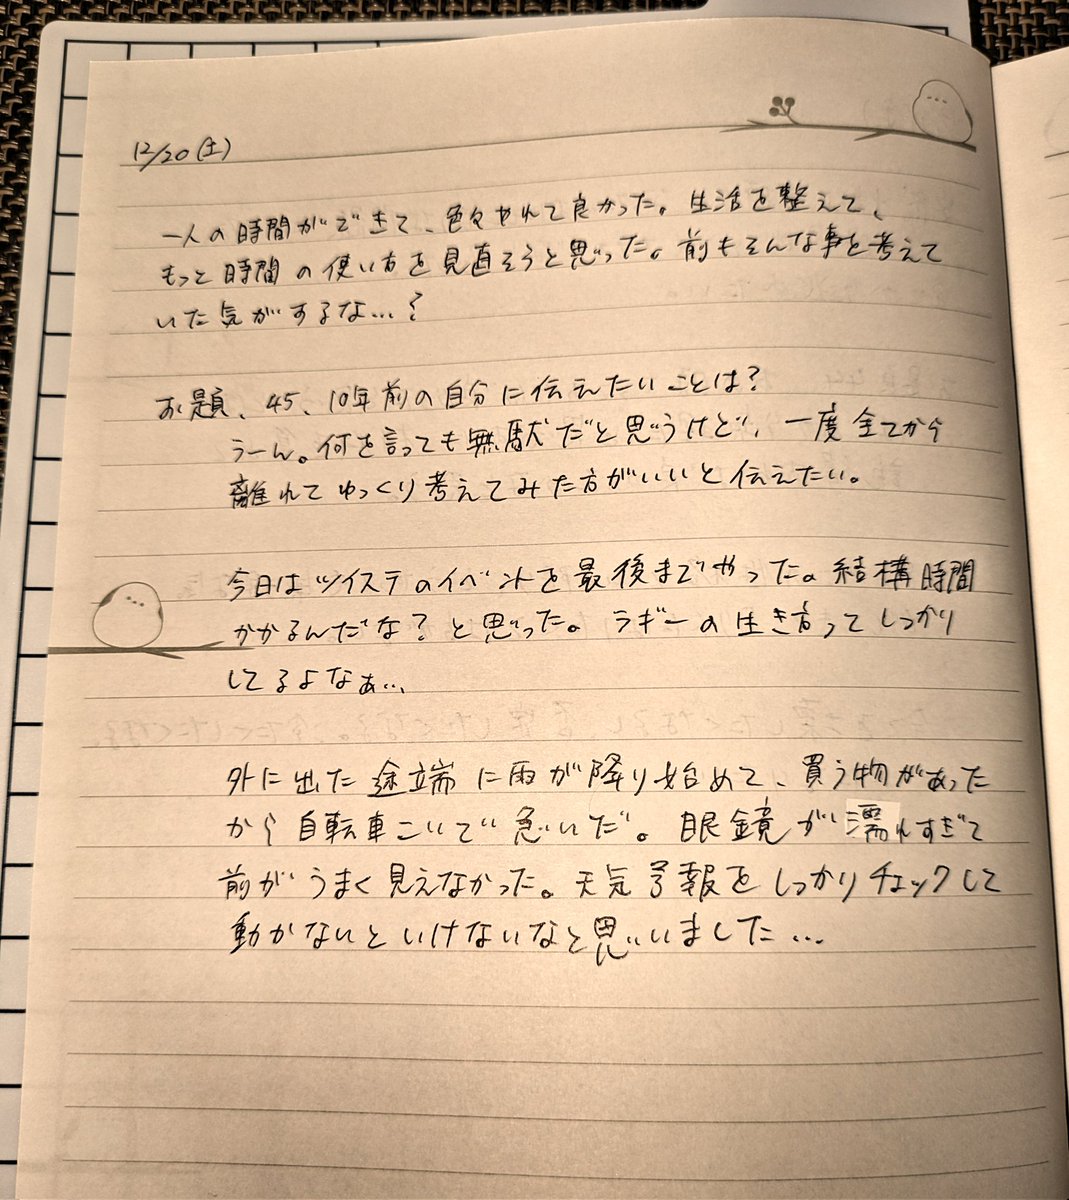 12/20(土)
一人の時間ができて、色々やれて良かった。生活を整えて、
もっと時間の使い方を見直そうと思った。前もそんな事を考えて
いた気がするな…?
お題、45、10年前の自分に伝えたいことは?
うーん。何を言っても無駄だと思うけど、一度全てから
離れてゆっくり考えてみた方がいいと伝えたい。
今日はツイステのイベントを最後までやった。結構時間
かかるんだな?と思った。ラギーの生き方ってしっかり
してるよなぁ…
外に出た途端に雨が降り始めて、買う物があった
から自転車こいで急いだ。眼鏡が濡れすぎて
前がうまく見えなかった。天気予報をしっかりチェックして
動かないといけないなと思いました…